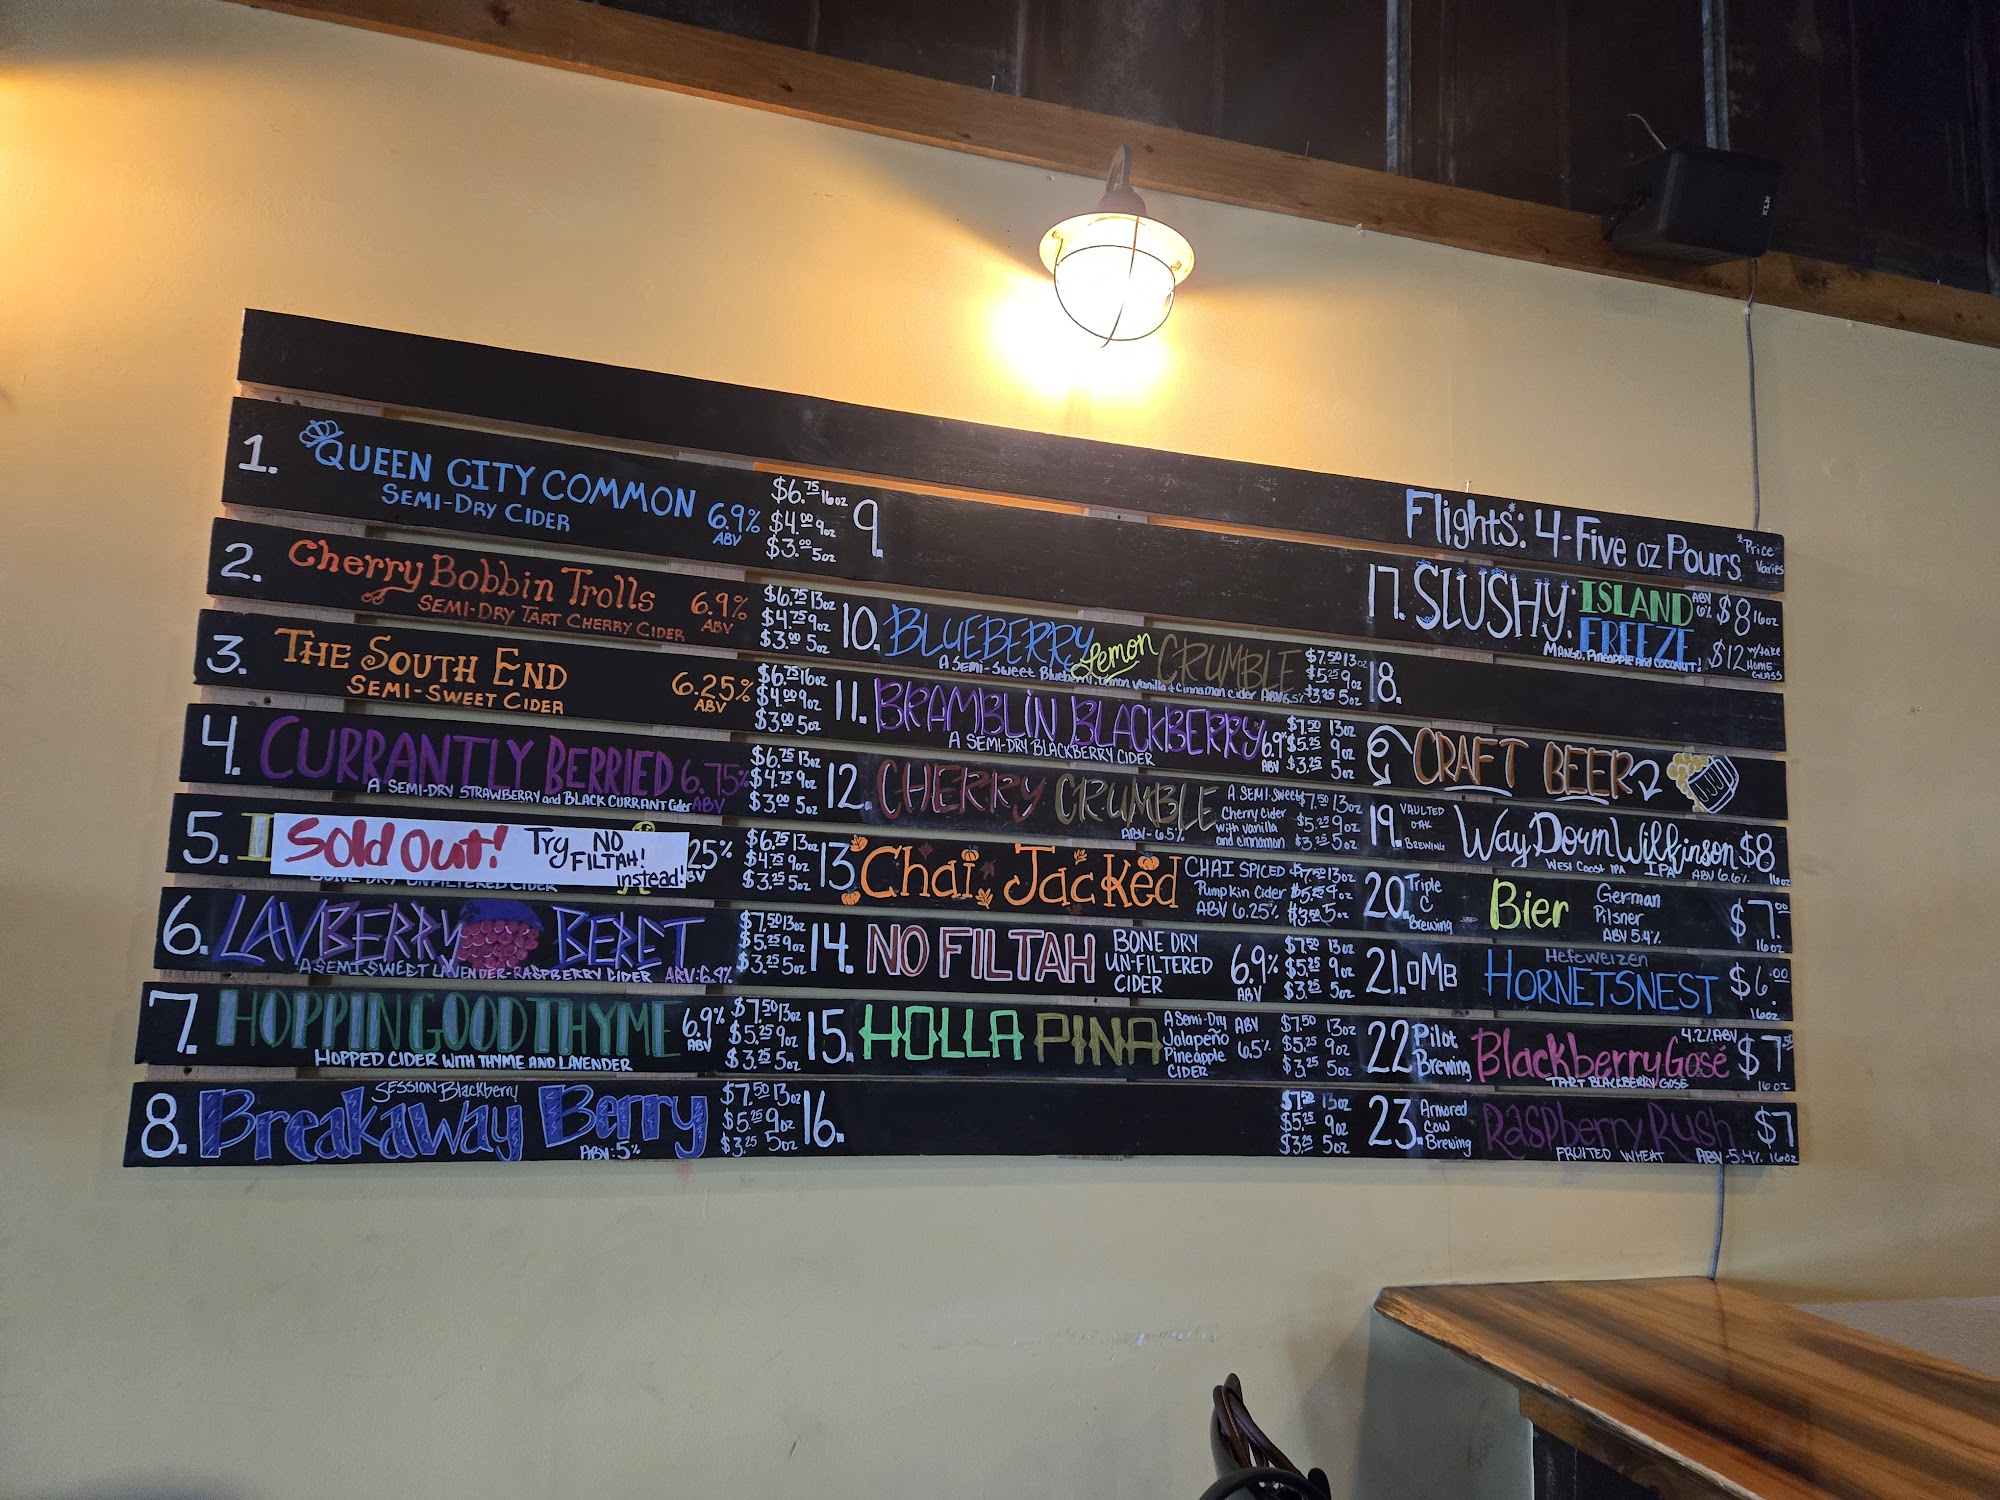 1. QUEEN CITY COMMON 6.9% ABV
SEMI-DRY CIDER
$6.75 16oz
$4.00 9oz
$3.00 5oz
2. Cherry Bobbin Trolls 6.9% ABV
SEMI-DRY TART CHERRY CIDER
$6.75 13oz
$4.75 9oz
$3.00 5oz
3. THE SOUTH END 6.25% ABV
SEMI-SWEET CIDER
$6.75 16oz
$4.00 9oz
$3.00 5oz
4. CURRANTLY BERRIED 6.75% ABV
A SEMI-DRY STRAWBERRY and BLACK CURRANT Cider
$6.75 13oz
$4.75 9oz
$3.00 5oz
5. Sold Out! Try NO FILTAH! instead! 25%
BONE DRY UNFILTERED CIDER
$6.75 13oz
$4.75 9oz
$3.25 5oz
6. LAVBERRY BERET
A SEMI SWEET LAVENDER-RASPBERRY CIDER ABV:6.9%
$7.50 13oz
$5.25 9oz
$3.25 5oz
7. HOPPIN GOOD THYME 6.9% ABV
HOPPED CIDER WITH THYME AND LAVENDER
$7.50 13oz
$5.25 9oz
$3.25 5oz
8. Breakaway Berry
SESSION Blackberry
ABV: 5%
$7.50 13oz
$5.25 9oz
$3.25 5oz
9.
10. BLUEBERRY Lemon CRUMBLE
A Semi-Sweet Blueberry, Lemon Vanilla & Cinnamon Cider
$7.50 13oz
$5.25 9oz
$3.25 5oz
11. BRAMBLIN BLACKBERRY 6.9% ABV
A SEMI-DRY BLACKBERRY CIDER
$7.50 13oz
$5.25 9oz
$3.25 5oz
12. CHERRY CRUMBLE
ABV- 6.5%
A SEMI-Sweet
Cherry Cider
with vanilla
and cinnamon
$7.50 13oz
$5.25 9oz
$3.25 5oz
13 Chai Jacked
CHAI SPICED
Pumpkin Cider
ABV 6.25%
$7.50 13oz
$5.25 9oz
$3.50 5oz
14. NO FILTAH
BONE DRY
UN-FILTERED
CIDER
6.9% ABV
$7.50 13oz
$5.25 9oz
$3.25 5oz
15. HOLLA PINA
A Semi-Dry
Jalapeño
Pineapple
CIDER
ABV 6.5%
$7.50 13oz
$5.25 9oz
$3.25 5oz
16.
$7.50 13oz
$5.25 9oz
$3.25 5oz
Flights*: 4-Five oz Pours *Price Varies
17. SLUSHY: ISLAND FREEZE
ABV 6%
MANGO, Pineapple and Coconut!
$8 16oz
$12 w/take HOME GLASS
18.
CRAFT BEER
19. VAULTED OAK BREWING
Way Down Wilkinson IPA
West Coast IPA ABV 6.6%
$8 16oz
20. Triple C Brewing
Bier
German
Pilsner
ABV 5.4%
$7.00 16oz
21. OMB
Hefeweizen
HORNETSNEST
$6.00 16oz
22 Pilot Brewing
4.2% ABV
Blackberry Gosé
TART BLACKBERRY GOSE
$7.50 16oz
23. Armored Cow Brewing
Raspberry Rush
FRUITED WHEAT ABV-5.4%
$7 16oz
KLH